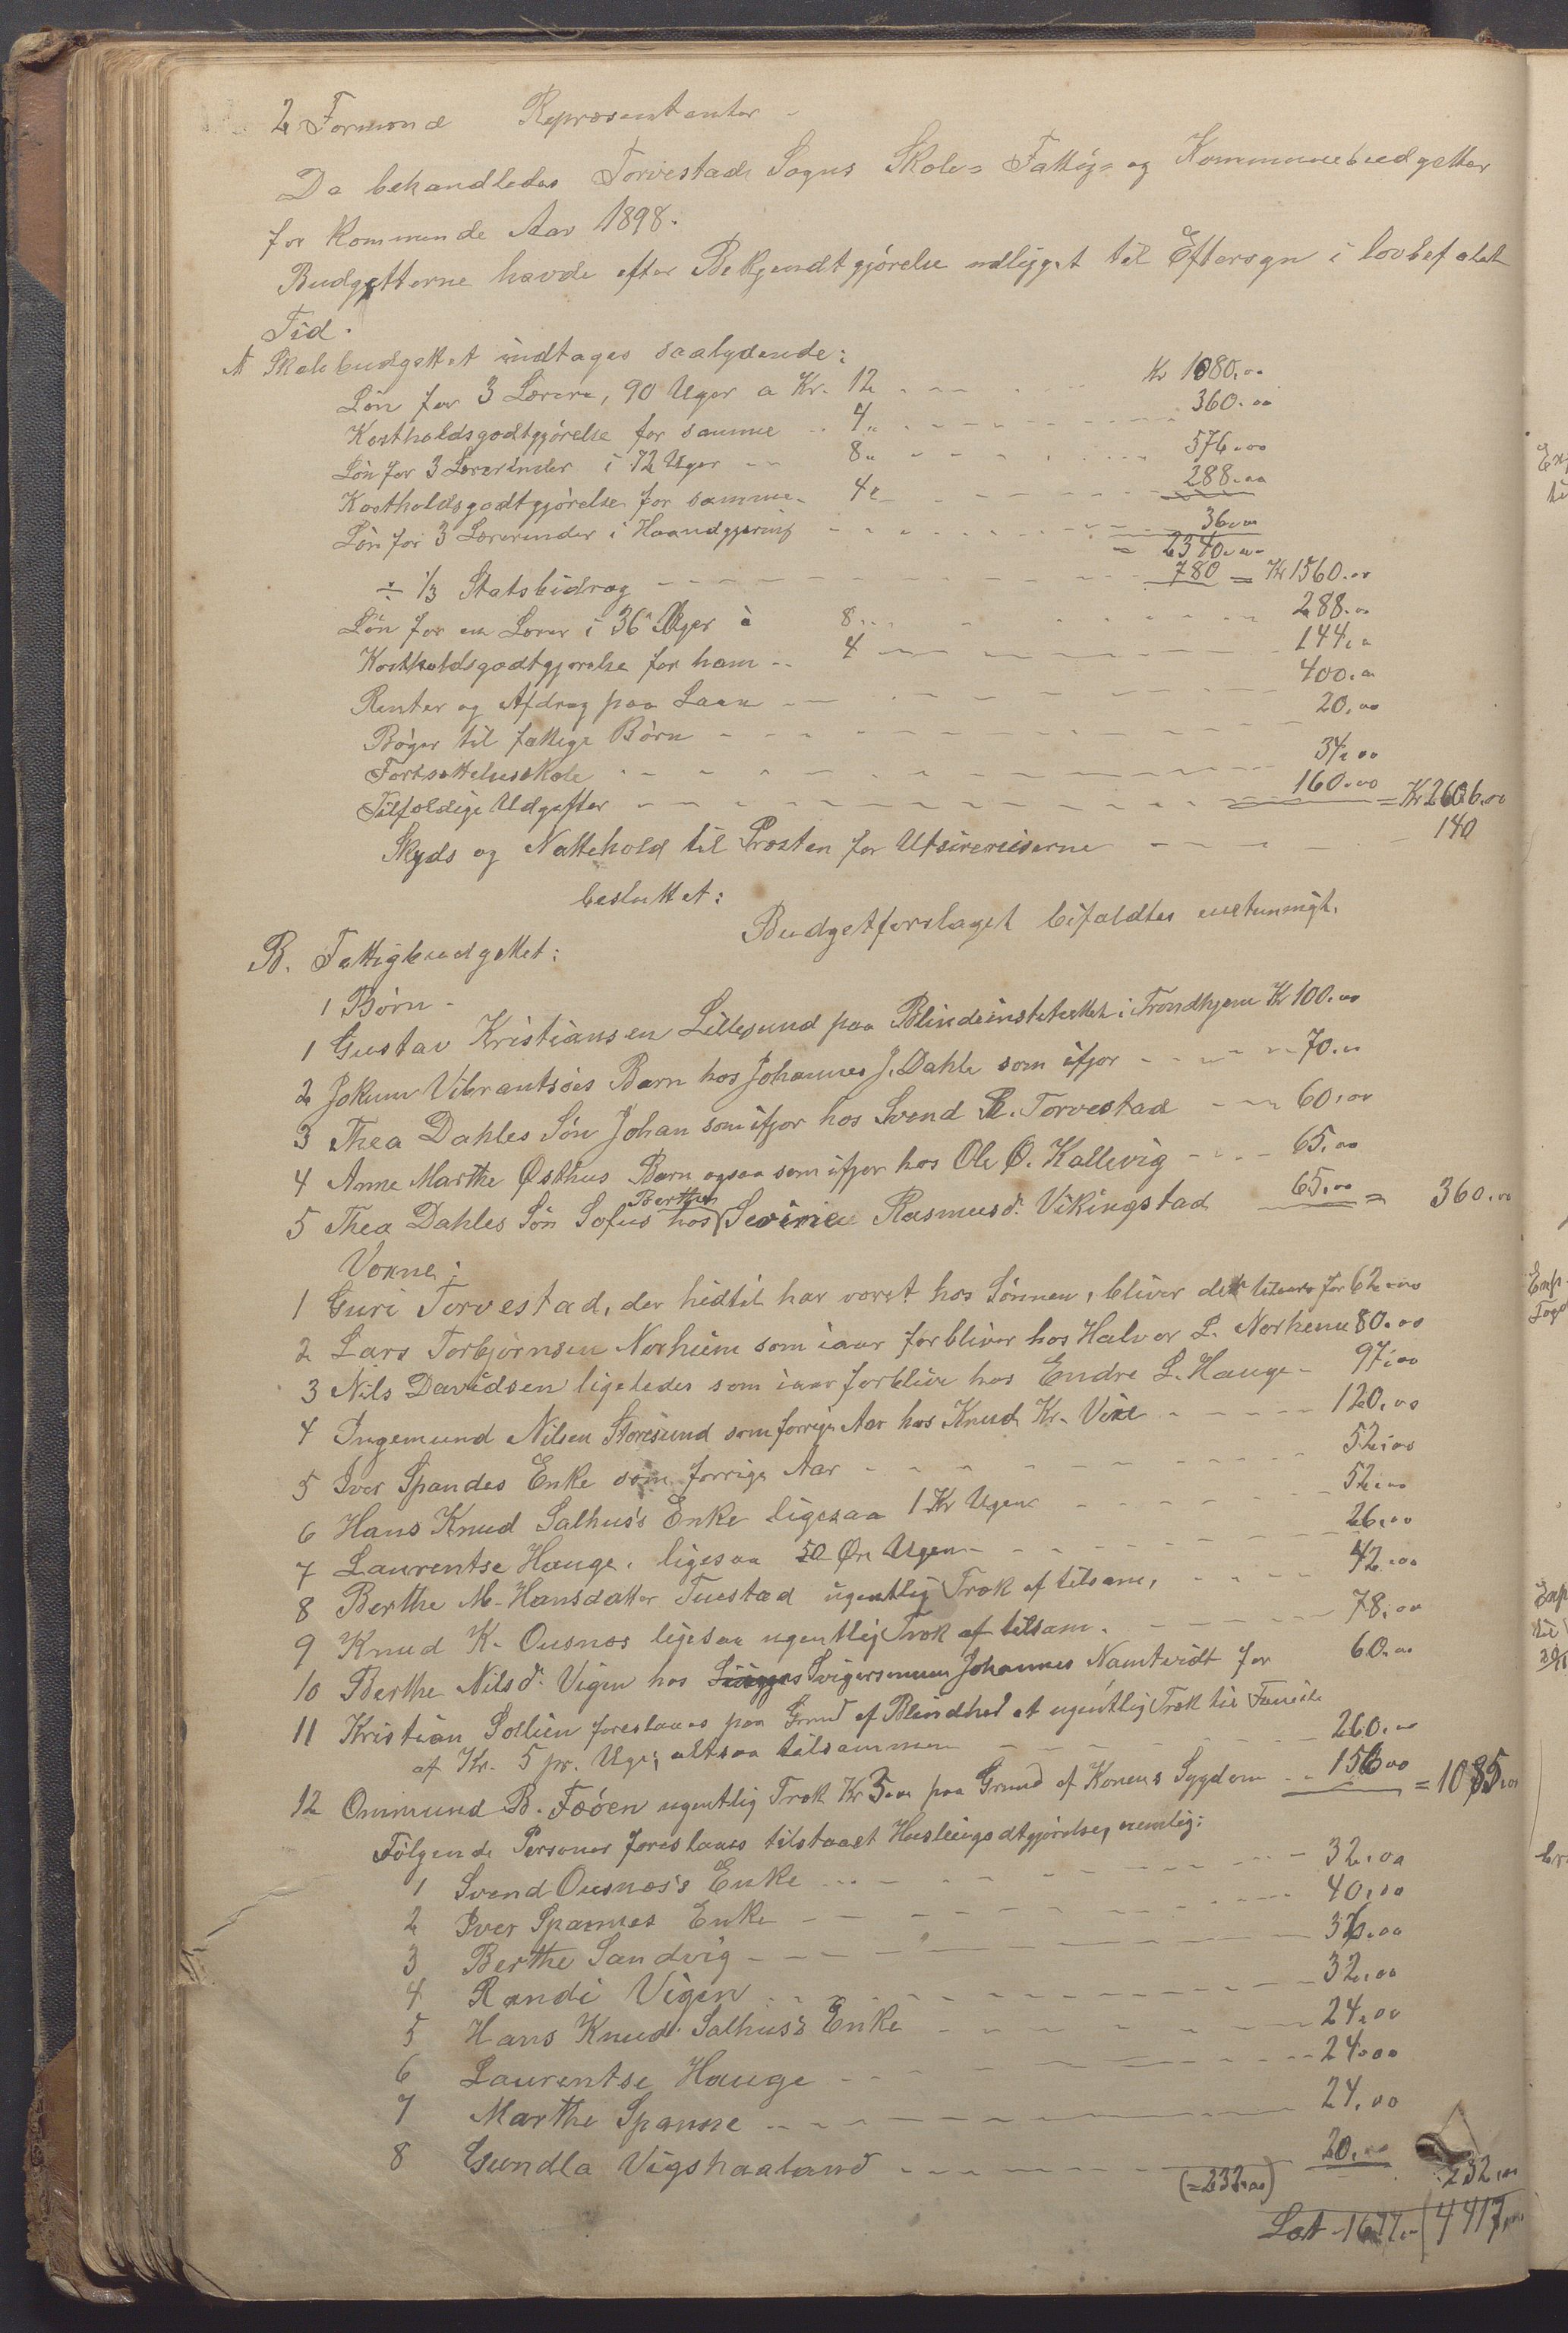 2 Formænd Repræsentanter -
Da behandledes Torvestads Sogns Skole- Fattig- og Kommunebudgetter
for kommende Aar 1898.
Budgetterne havde efter Bekjendtgjørelse udligget til Eftersyn i lovbefalet
Tid.
A Skolebudgettet indtages saalydende:
Løn for 3 Lærere, 90 Uger a Kr. 12 - - - Kr 1080.00
Kostholdsgodtgjørelse for samme - 4 - - - 360.00
Løn for 3 Lærerinder i 72 Uger - 8 - - - 576.00
Kostholdsgodtgjørelse for samme - 4 - - - 288.00
Løn for 3 Lærerinder i Haandgjerning - - - 36.00
= 2340.00
÷ 1/3 Statsbidrag - - - 780 = Kr 1560.00
Løn for en Lærer i 36 Uger à 8 - - - 288.00
Kostholdsgodtgjørelse for ham - 4 - - - 144.00
Renter og Afdrag paa Laan - - - 400.00
Bøger til fattige Børn - - - 20.00
Fortsættelsesskole - - - 34.00
Tilfældige Udgifter - - - 160.00 = Kr 2606.00
Skyds og Nattehold til Præsten for Utsirereiserne - - - 140
besluttet:
Budgetforslaget bifaldtes enstemmigt.
B. Fattigbudgettet:
1 Børn -
1 Gustav Kristiansen Lillesund paa Blindeinstitutet i Trondhjem Kr 100.00
2 Jokum Vibrantsøes Barn hos Johannes J. Dahle som ifjor - - - 70.00
3 Thea Dahles Søn Johan som ifjor hos Svend R. Torvestad - - - 60.00
4 Anne Marthe Østhus Barn ogsaa som ifjor hos Ole Ø. Kallevig - - - 65.00
5 Thea Dahles Søn Sofus hos Berthe Sevirine Rasmusd. Vikingstad 65.00 = 360.00
Voxne:
1 Guri Torvestad, der hidtil har været hos Sønnen, bliver der for 62.00
2 Lars Torbjørnsen Norheim som iaar forbliver hos Halvor L. Norheim 80.00
3 Nils Davidsen ligeledes som iaar forblive hos Endre L. Hauge - 97.00
4 Ingemund Nilsen Storesund som forrige Aar hos Knud Kr. Vike - - - 120.00
5 Iver Spandes Enke som forrige Aar - - - 52.00
6 Hans Knud Salhus's Enke ligesaa 1 Kr Ugen - - - 52.00
7 Laurentse Hauge, ligesaa 50 Øre Ugen - - - 26.00
8 Berthe M. Hansdatter Tuestad ugentlig Træk af tilsam, - - - 42.00
9 Knud K. Ousnæs ligesaa ugentlig Træk af tilsam. - - - 78.00
10 Berthe Nilsd. Vigen hos Svigersønnen Johannes Namtvedt for 60.00
11 Kristian Sollien foreslaaes paa Grund af Blindhed et ugentlig Træk til Familie
af Kr. 5 pr. Uge, altsaa tilsammen - - - 260.00
12 Ommund B. Fæøen ugentlig Træk Kr 3.00 paa Grund af Konens Sygdom - - 156.00 = 1085.00
Følgende Personer foreslaaes tilstaaet Husleiegodtgjørelse, nemlig:
1 Svend Ousnæs's Enke - - - 32.00
2 Iver Spannes Enke - - - 40.00
3 Berthe Sandvig - - - 36.00
4 Randi Vigen - - - 32.00
5 Hans Knud Salhus's Enke - - - 24.00
6 Laurentse Hauge - - - 24.00
7 Marthe Spanne - - - 24.00
8 Gundla Vigshaaland - - - 20.00
(=232.00) 232.00
Lat - 1677.- 4417.00